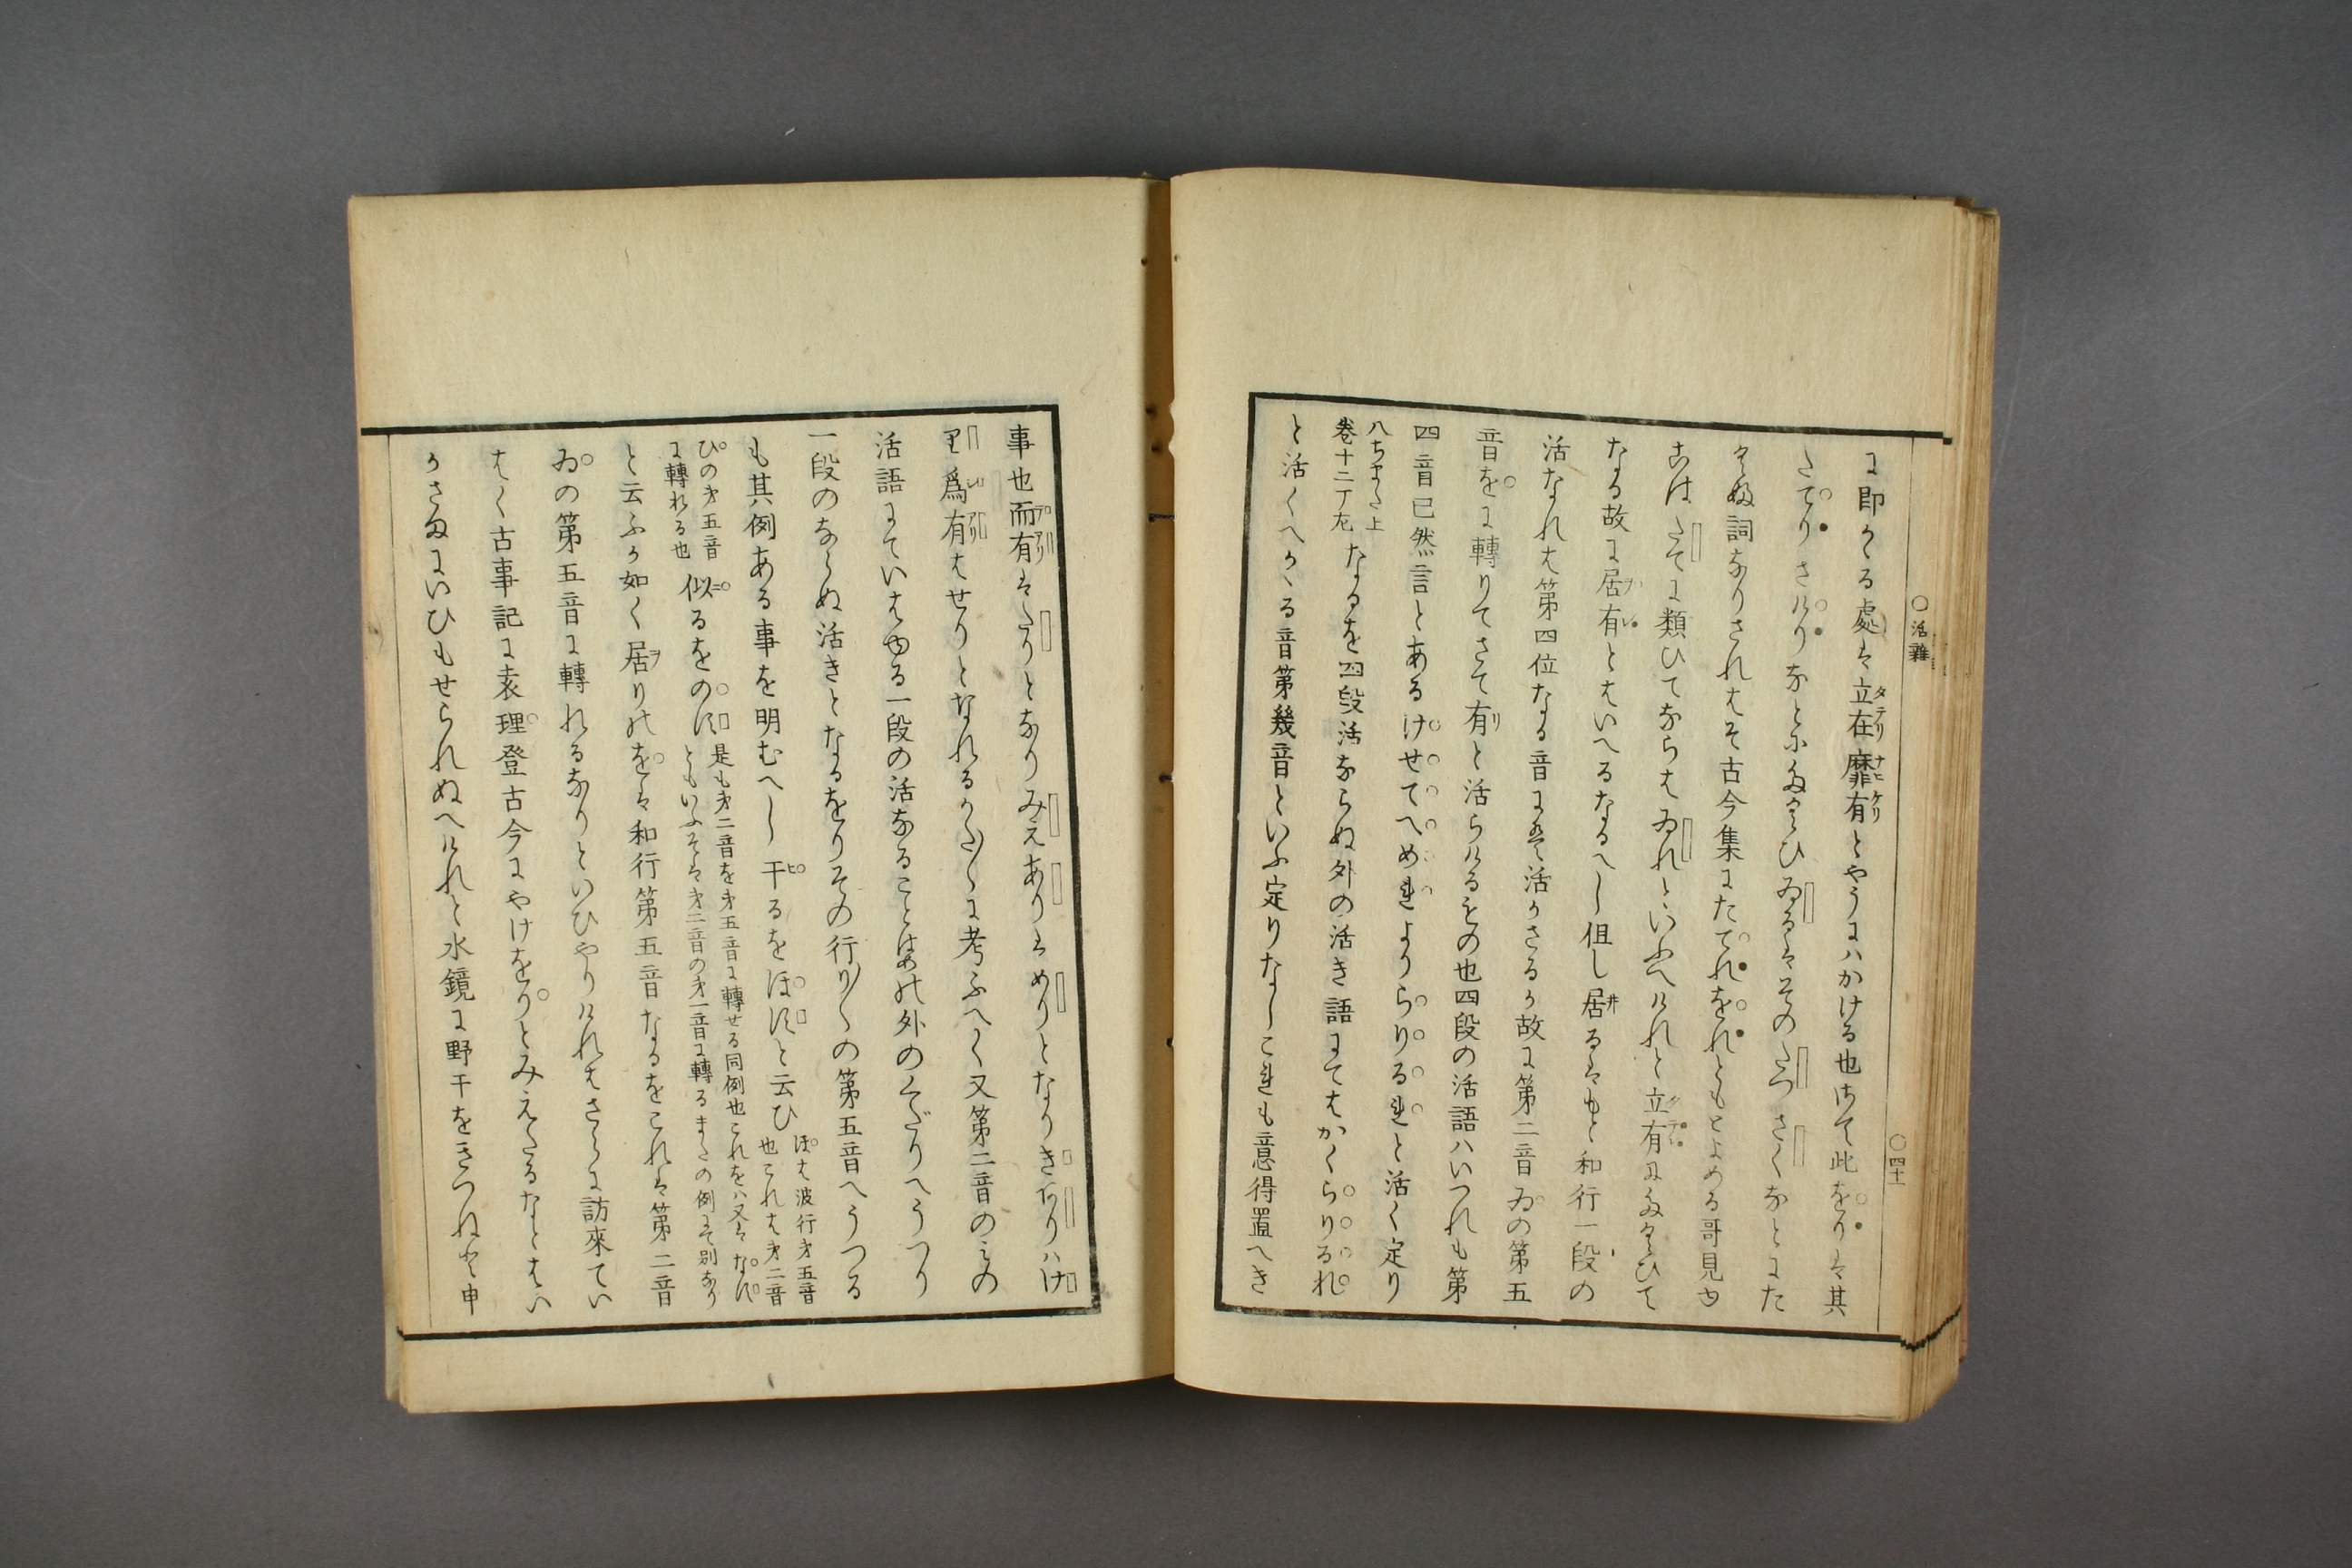 ○活雜
○四十一
に即かゝる處は立在靡有とやうにハかける也さて此をりは其
たてりさけりなとにたくひゐるはそのたつさくなとにた
くふ詞なりされはそ古今集にたてれをれともとよめる哥見ゆ
こはたてに類ひてならはゐれといふへけれと立有にたくひて
なる故に居有とはいへるなるへし但し居るはもと和行一段の
活なれは第四位なる音にては活かさるか故に第二音ゐの第五
音をに轉りてさて有と活らけるもの也四段の活語ハいつれも第
四音已然言とあるけせてへめれよりらりるれと活く定り
八ちまた上
卷十二丁左
なるを四段活ならぬ外の活き語にてはかくらりるれ
と活くへかゝる音第幾音といふ定りなしこれも意得置へき
事也而有はたりとなりみえありはめりとなりきありハけ
り爲有はせりとなれるかたく に考ふへく又第二音のみの
活語にていはゆる一段の活なることはあれ外のくだりへうつり
一段のならぬ活きとなるをりその行りくの第五音へうつる
も其例ある事を明むへし干るをほすと云ひ
ほは波行才五音
也これは才二音
ひの才五音
に轉れる也
似るをのす
是も才二音を才五音に轉せる同例也これをハ又はなす
ともいふそは才二音の才一音に轉るまたの例にて別なり
と云ふか如く居りけをは和行第五音なるをこれは第二音
ゐの第五音に轉れるなりといひやりけれはさらに訪來てい
はく古事記に袁理登古今にやけをりとみえたるなとはい
かさまにいひもせられぬへけれと水鏡に野干をきつねと申